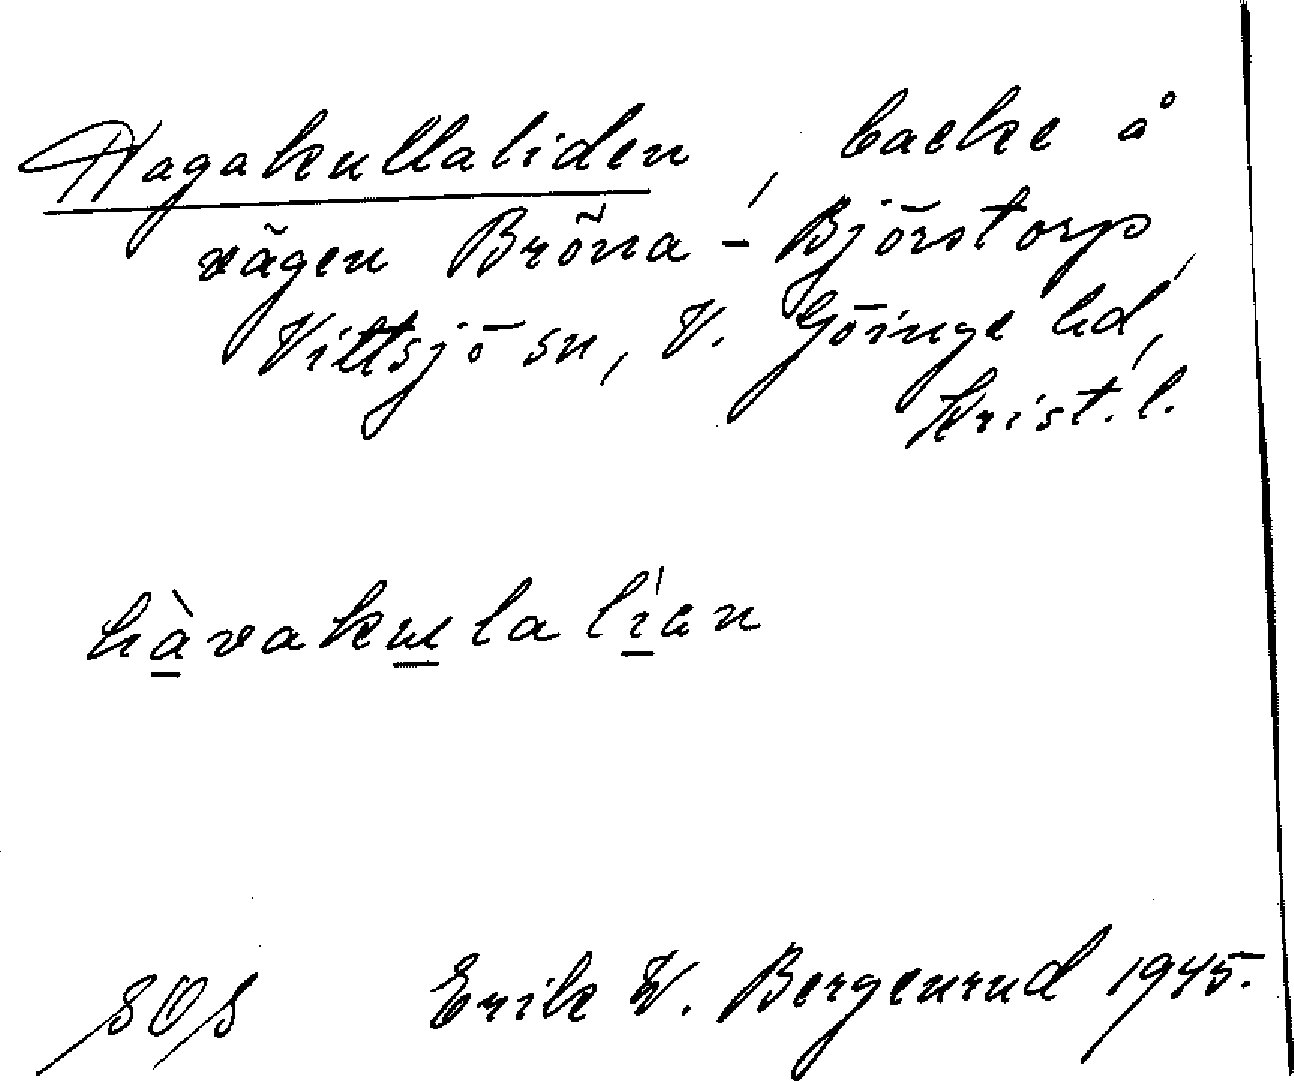 Hagakullaliden, backe å
vägen Bröna - Björstorp,
Vittsjö sn, V. Göinge hd,
Krist. l.
hàvakulalían
SOS Erik W. Bergenrud 1945.